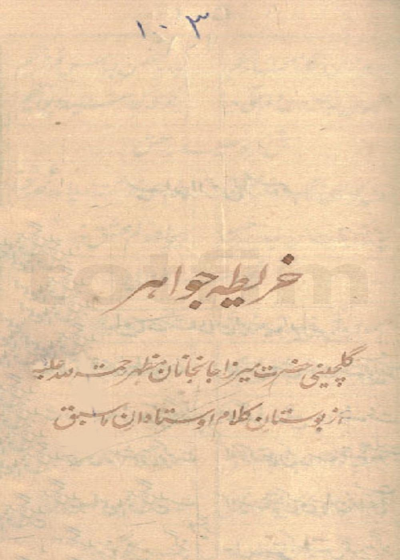 ۱۰۳
خریطه جواهر
گلچینی حضرت میرزا جانجانان مظهر رحمة الله علیه
از بوستان کلام اوستادان ماسبق